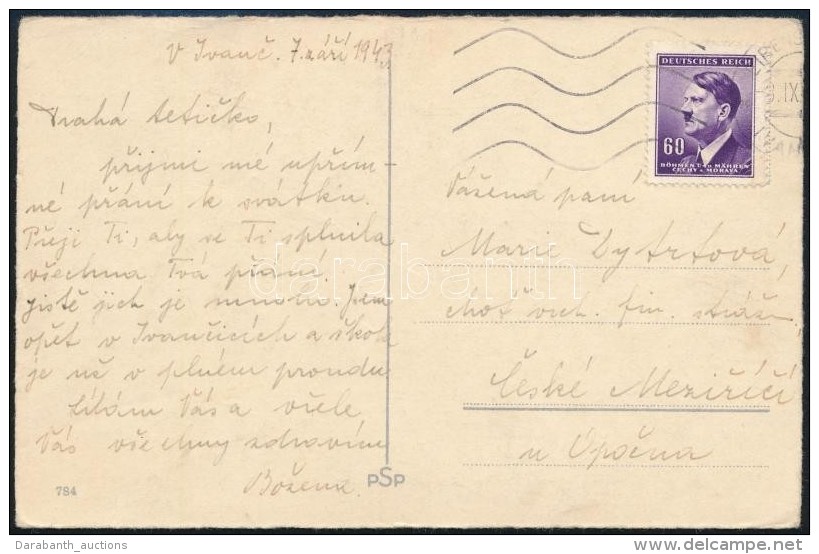 V Ivanč. 7. září 1943
Drahá tetičko,
přijmi mé upřím-
né přání k svátku.
Přeji Ti, aby se Ti splnila
všechna Tvá přání.
jistě jich je mnoho. Jsem
opět v Ivančicích a škola
je už v plném proudu
Líbám Vás a vřele
Vás všechny zdravím
Božena.
784
PSP
DEUTSCHES REICH
60
BÖHMEN U. MÄHREN
ČECHY A MORAVA
IX
Vážená paní
Marie Dytrtová,
choť vrch. fin. stráže
České Meziříčí
u Opočna
darabanth
Darabanth_auctions
www.delcampe.net